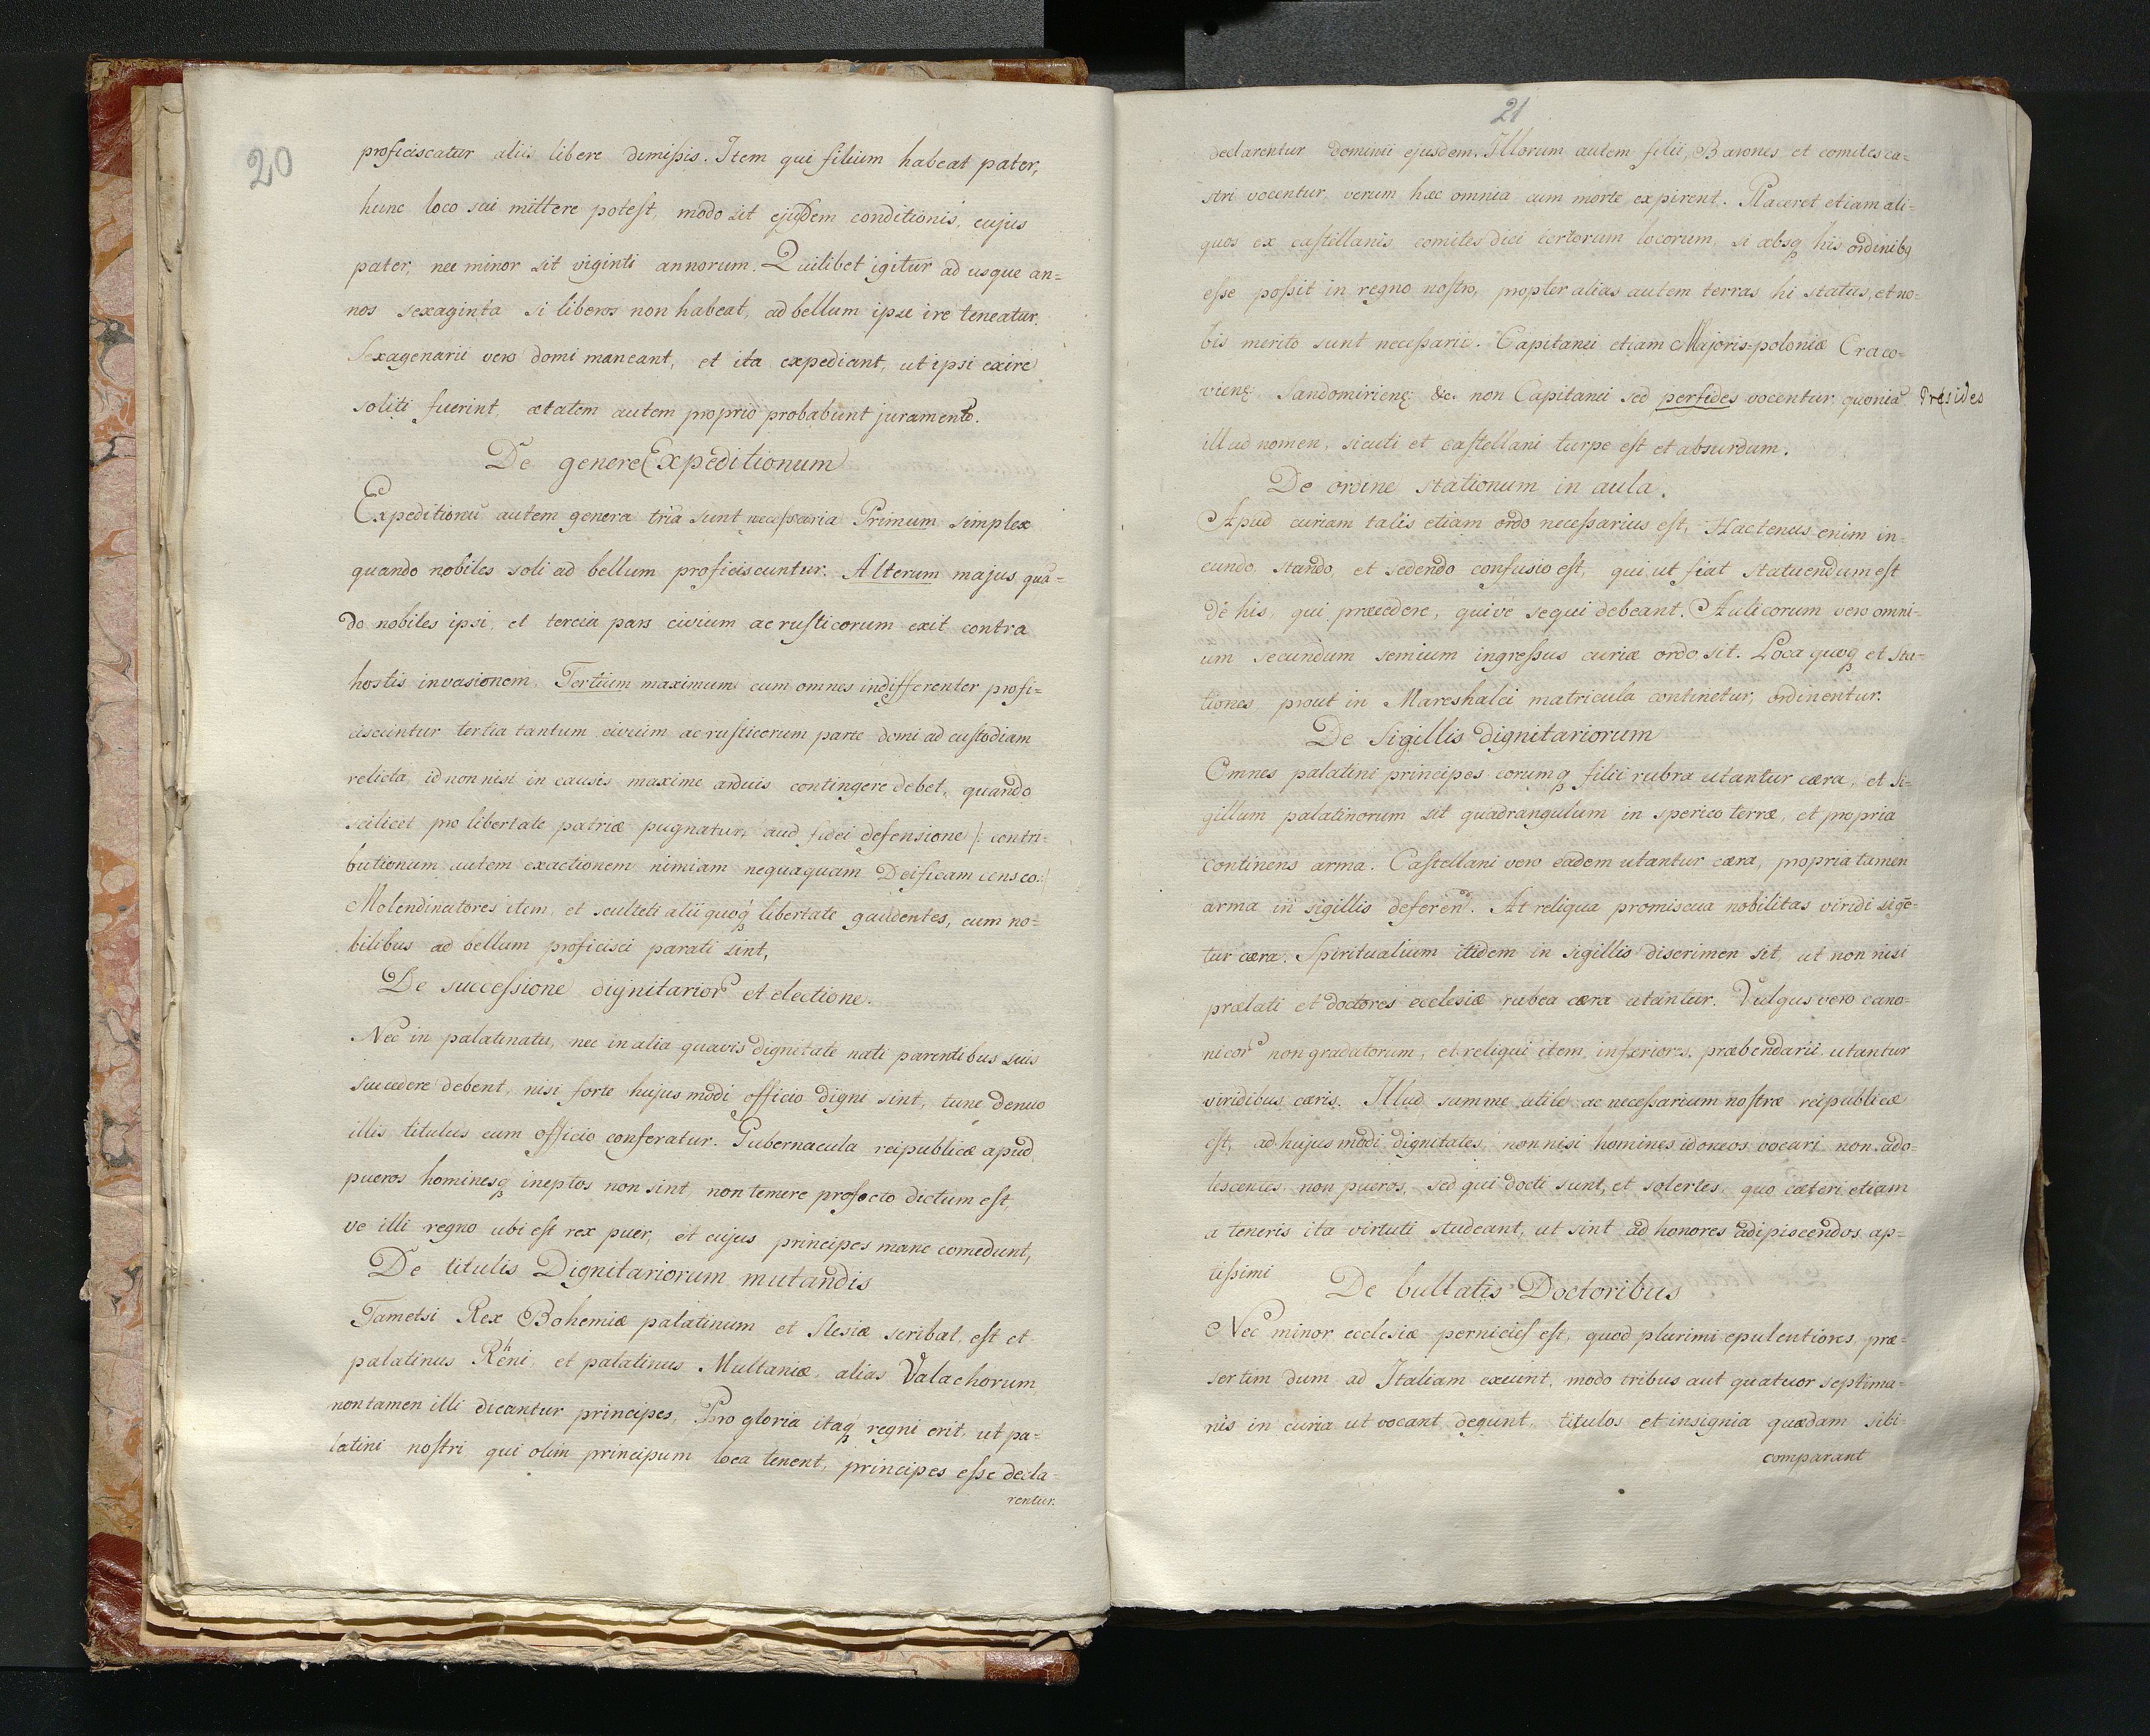 20
proficiscatur aliis libere dimissis. Item qui filium habeat pater,
hunc loco sui mittere potest, modo sit ejusdem conditionis, cujus
pater, nec minor sit viginti annorum. Quilibet igitur ad usque an=
nos sexaginta si liberos non habeat, ad bellum ipse ire teneatur.
Sexagenarii vero domi maneant, et ita expediant, ut ipsi exire
soliti fuerint, ætatem autem proprio probabunt juramento.
De genere Expeditionum
Expeditionū autem genera tria sunt necessaria Primum simplex
quando nobiles soli ad bellum proficiscuntur. Alterum majus quā=
do nobiles ipsi, et tercia pars civium ac rusticorum exit contra
hostis invasionem. Tertium maximum cum omnes indifferenter profi=
ciscuntur tertia tantum civium ac rusticorum parte domi ad custodiam
relicta, id non nisi in causis maxime arduis contingere debet, quando
scilicet pro libertate patriæ pugnatur, aud fidei defensione /: contri=
butionum autem exactionem nimiam nequaquam Deificam censeo:/
Molendinatores item, et sculteti alii quoq́ libertate gaudentes, cum no=
bilibus ad bellum proficisci parati sint,
De successione dignitarior̃ et electione.
Nec in palatinatu, nec in alia quavis dignitate nati parentibus suis
succedere debent, nisi forte hujus modi officio digni sint, tunc denuo
illis titulus cum officio conferatur. Gubernacula reipublicæ apud
pueros hominesq ineptos non sint, non temere profecto dictum est,
ve illi regno ubi est rex puer, et cujus principes mane comedunt,
De titulis Dignitariorum mutandis
Tametsi Rex Bohemiæ palatinum et Slesiæ scribat, est et
palatinus Rheni, et palatinus Multaniæ, alias Valachorum
non tamen illi dicantur principes, Pro gloria itaq́ regni erit, ut pa=
latini nostri qui olim principum loca tenent, principes esse decla=
rentur.
21
declarentur dominii ejusdem. Illorum autem filii, Barones et comites ca=
stri vocentur, verum hæc omnia cum morte expirent. Placeret etiam ali=
quos ex castellanis comites dici certorum locorum, si absq his ordinibq
esse possit in regno nostro, propter alias autem terras hi status, et no=
bis merito sunt necessarii. Capitanei etiam Majoris=poloniæ Craco=
vienę Sandomirienę &c. non Capitanei sed perfides vocentur, quoniā Præsides
illud nomen, sicuti et castellani turpe est et absurdum.
De ordine stationum in aula.
Apud curiam talis etiam ordo necessarius est, Hactenus enim in=
eundo, stando, et sedendo confusio est, qui ut fiat statuendum est
de his, qui præcedere, quive sequi debeant. Aulicorum vero omni=
um secundum semium ingressus curiæ ordo sit. Loca quoq et sta=
tiones, prout in Mareshalci matricula continetur, ordinentur.
De Sigillis dignitariorum
Omnes palatini principes eorumq filii rubra utantur cæra, et Si=
gillum palatinorum sit quadrangulum in sperico terræ, et propria
continens arma. Castellani vero eadem utantur cæra, propria tamen
arma in sigillis deferen͂. At reliqua promiscua nobilitas viridi sigē=
tur cæra. Spiritualium itidem in sigillis discrimen sit, ut non nisi
prælati et doctores ecclesiæ rubea cæra utantur. Vulgus vero cano=
nicor̃ non gradatorum, et reliqui item inferiores, præbendarii, utantur
viridibus cæris. Illud summe utile ac necessarium nostræ reipublicæ
est, ad hujus modi dignitates, non nisi homines idoneos vocari non ado=
lescentes, non pueros, sed qui docti sunt, et solertes, quo cæteri etiam
a teneris ita virtuti studeant, ut sint ad honores adipiscendos ap=
tissimi
De bullatis Doctoribus
Nec minor ecclesiæ pernicies est, quod plurimi opulentiores, præ=
sertim dum ad Italiam exeunt, modo tribus aut quatuor septima=
nis in curia ut vocant degunt, titulos et insignia quædam sibi
comparant